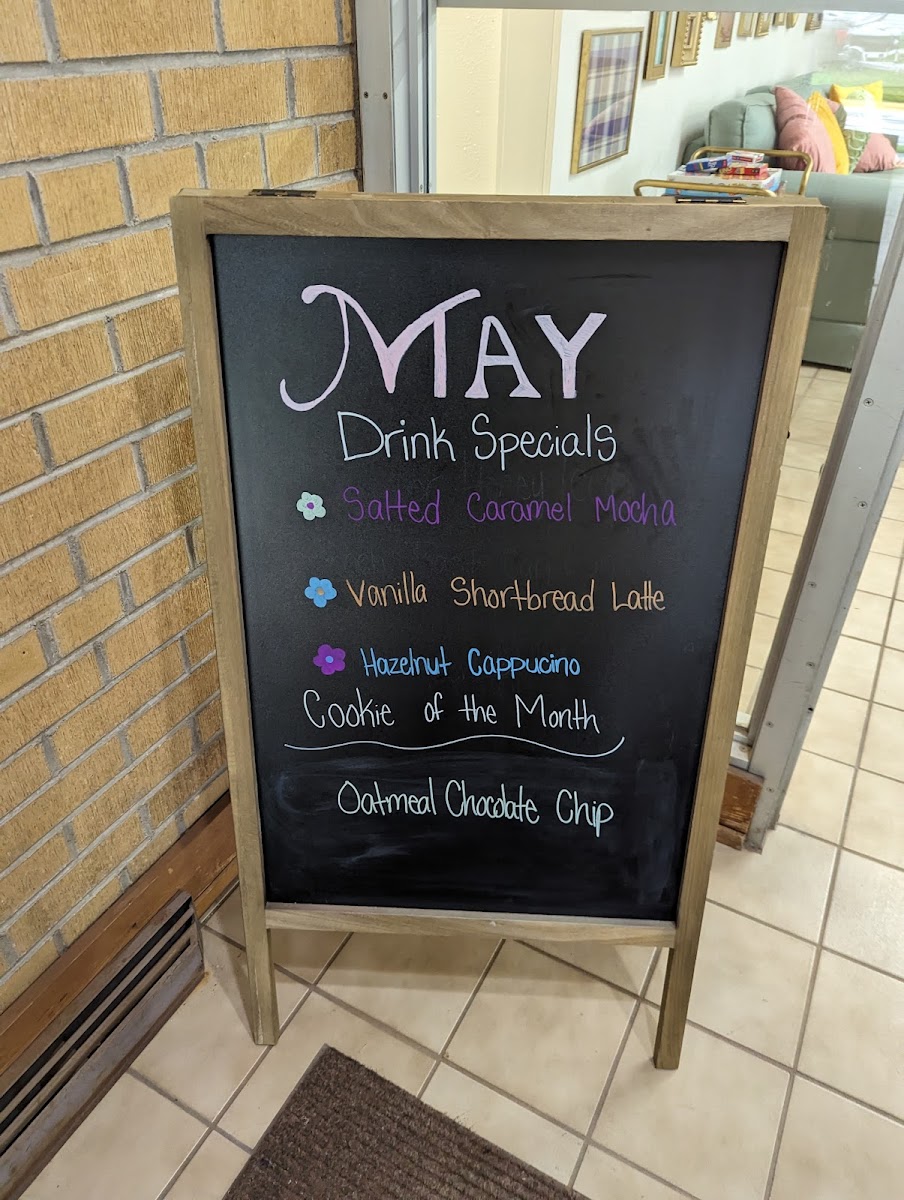 MAY
Drink Specials
Salted Caramel Mocha
Vanilla Shortbread Latte
Hazelnut Cappucino
Cookie of the Month
Oatmeal Chocolate Chip